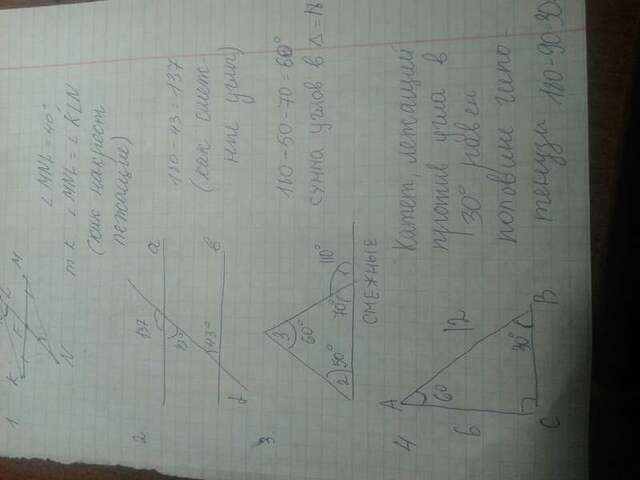 1
K
M
N
∠MNL = 40°
т.к. ∠MNL = ∠KLN
(как накрест
лежащие)
2
a
b
137
43°
180-43=137
(как смеж-
ные углы)
3.
3
60°
2
50°
70°
1
110°
СМЕЖНЫЕ
180-50-70=60°
сумма углов в Δ=18
4
A
60
12
6
30°
C
B
Катет, лежащий
против угла в
30° равен
половине гипо-
тенузы 180-90-30